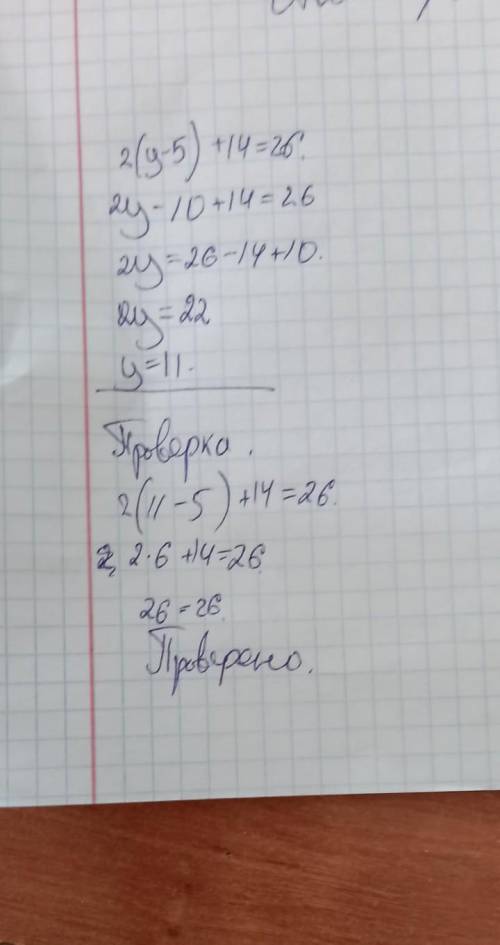 2(y-5)+14=26.
2y-10+14=26
2y=26-14+10.
2y=22
y=11.
Проверка.
2(11-5)+14=26.
2·6+14=26
26=26.
Проверено.